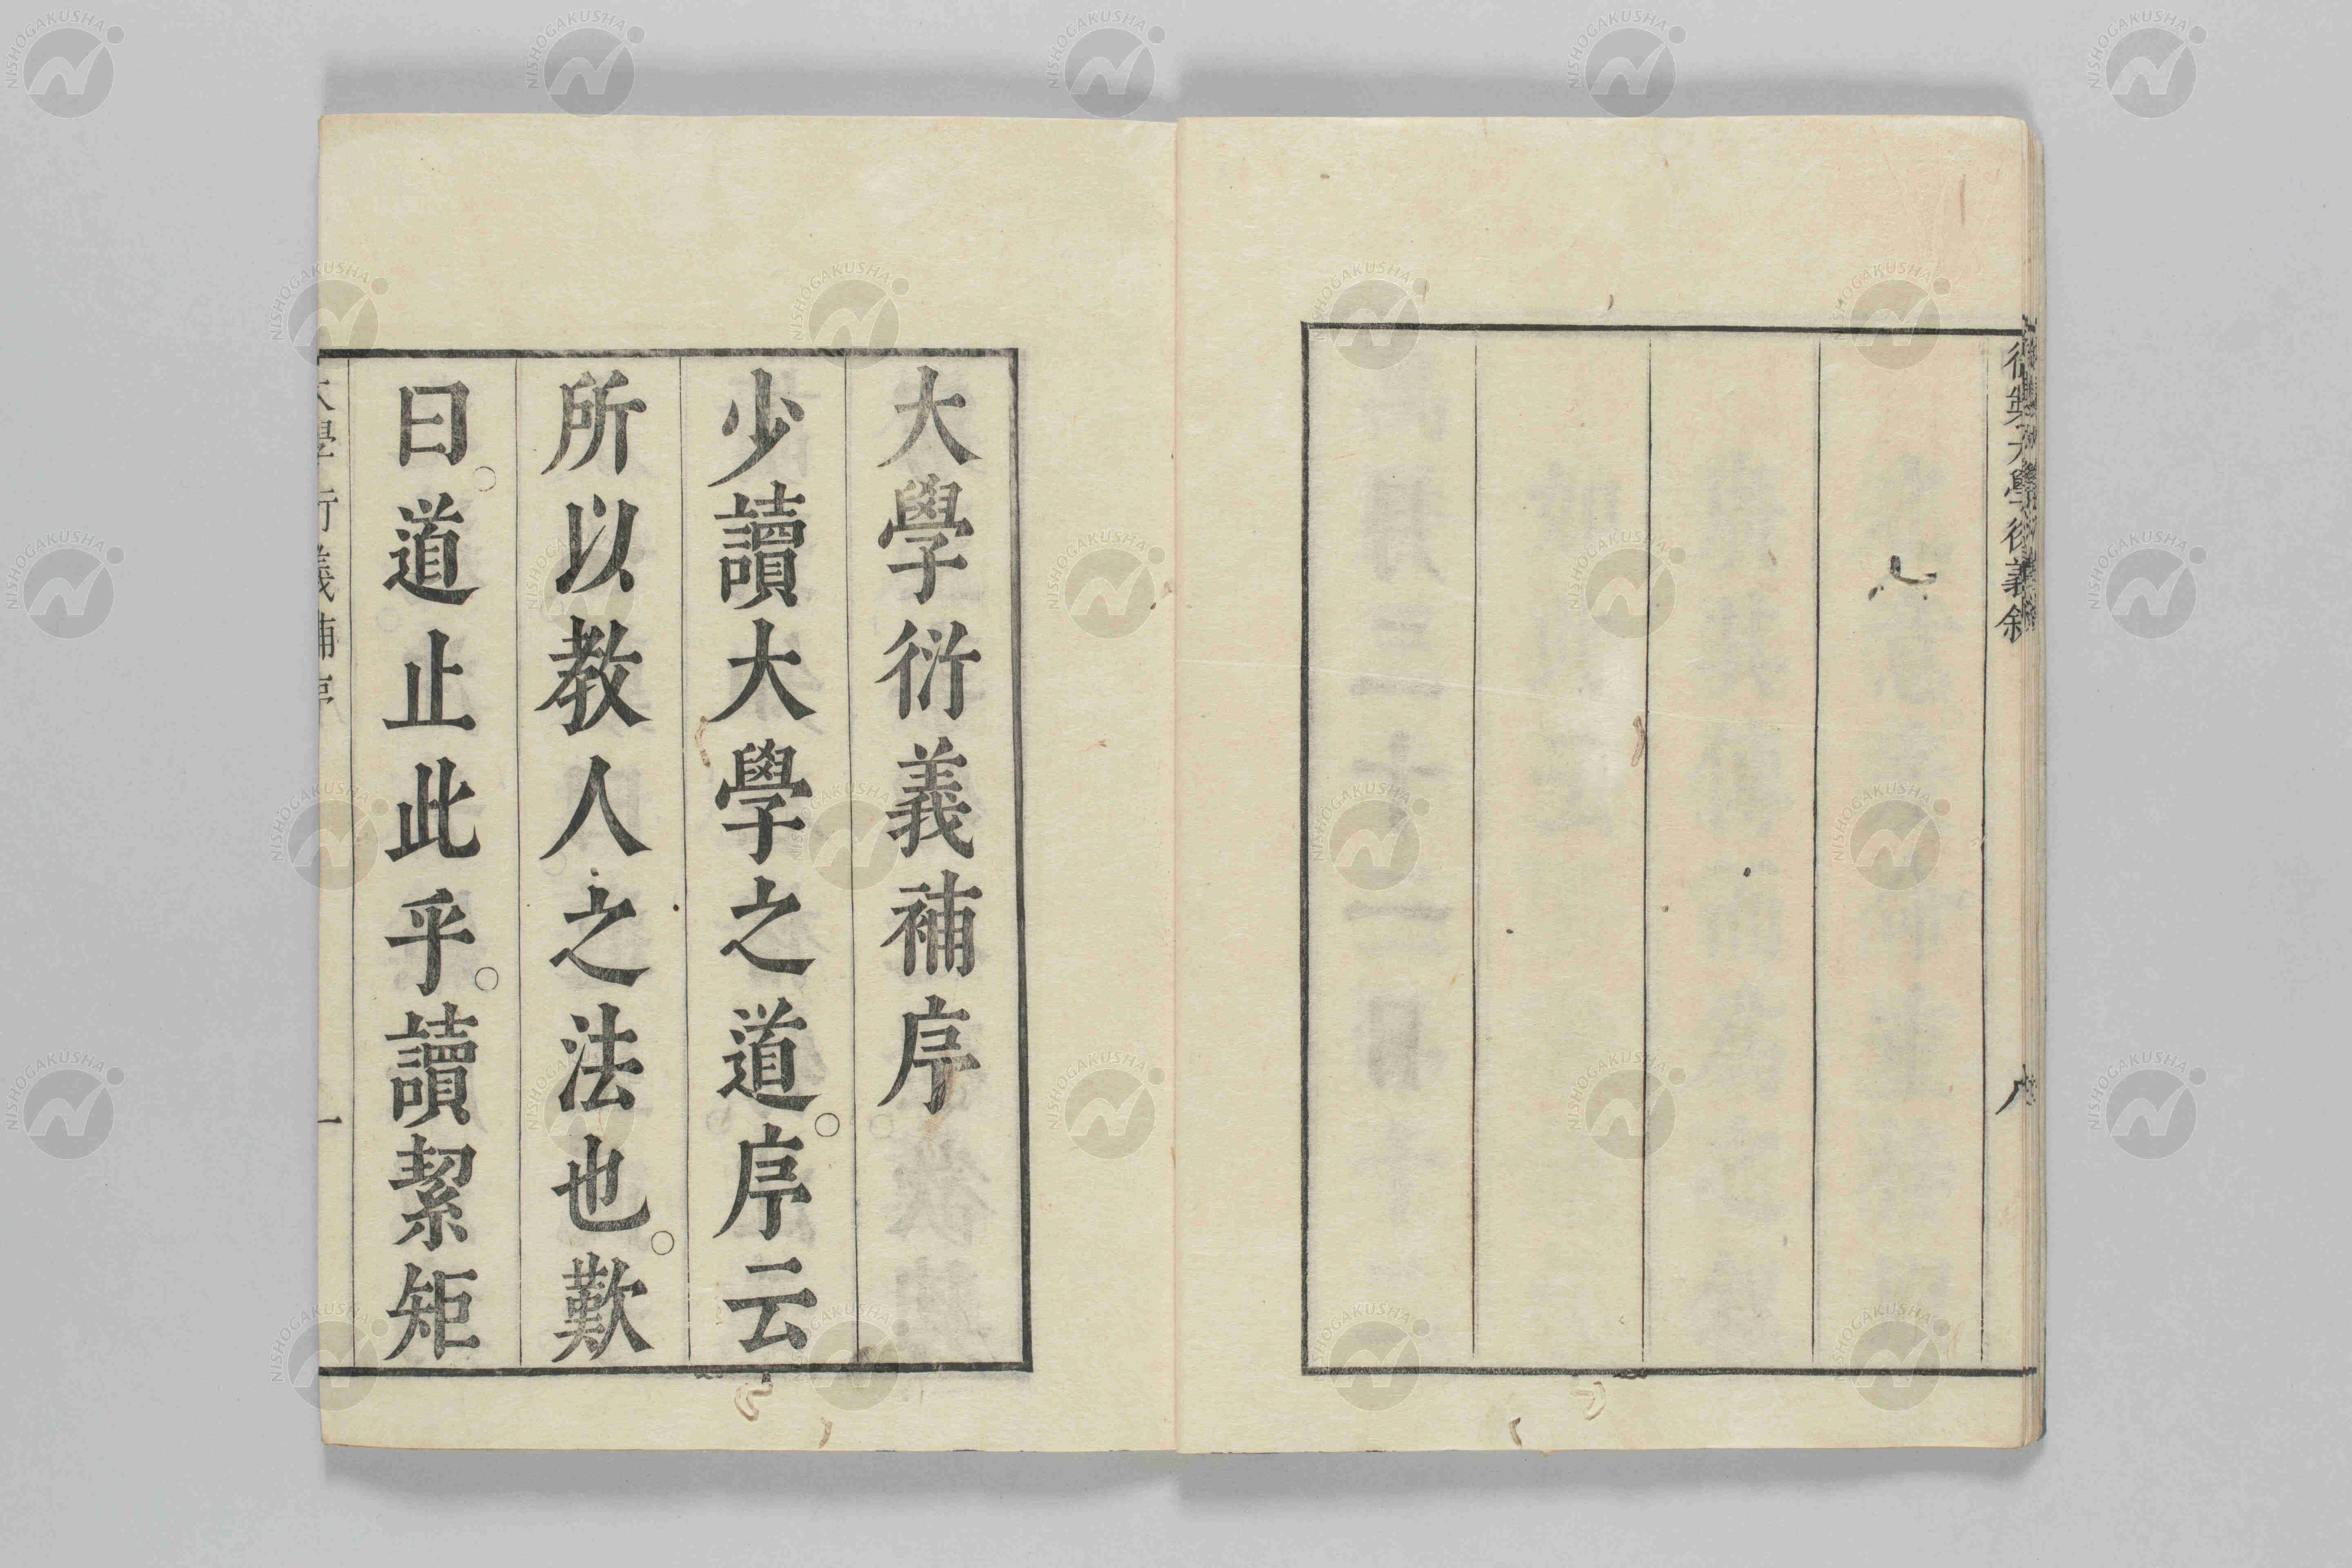 御製大學衍義敘
八
大學衍義補序
少讀大學之道。序云
所以教人之法也。歎
曰。道止此乎。讀絜矩
大學衍義補序
一
NISHOGAKUSHA